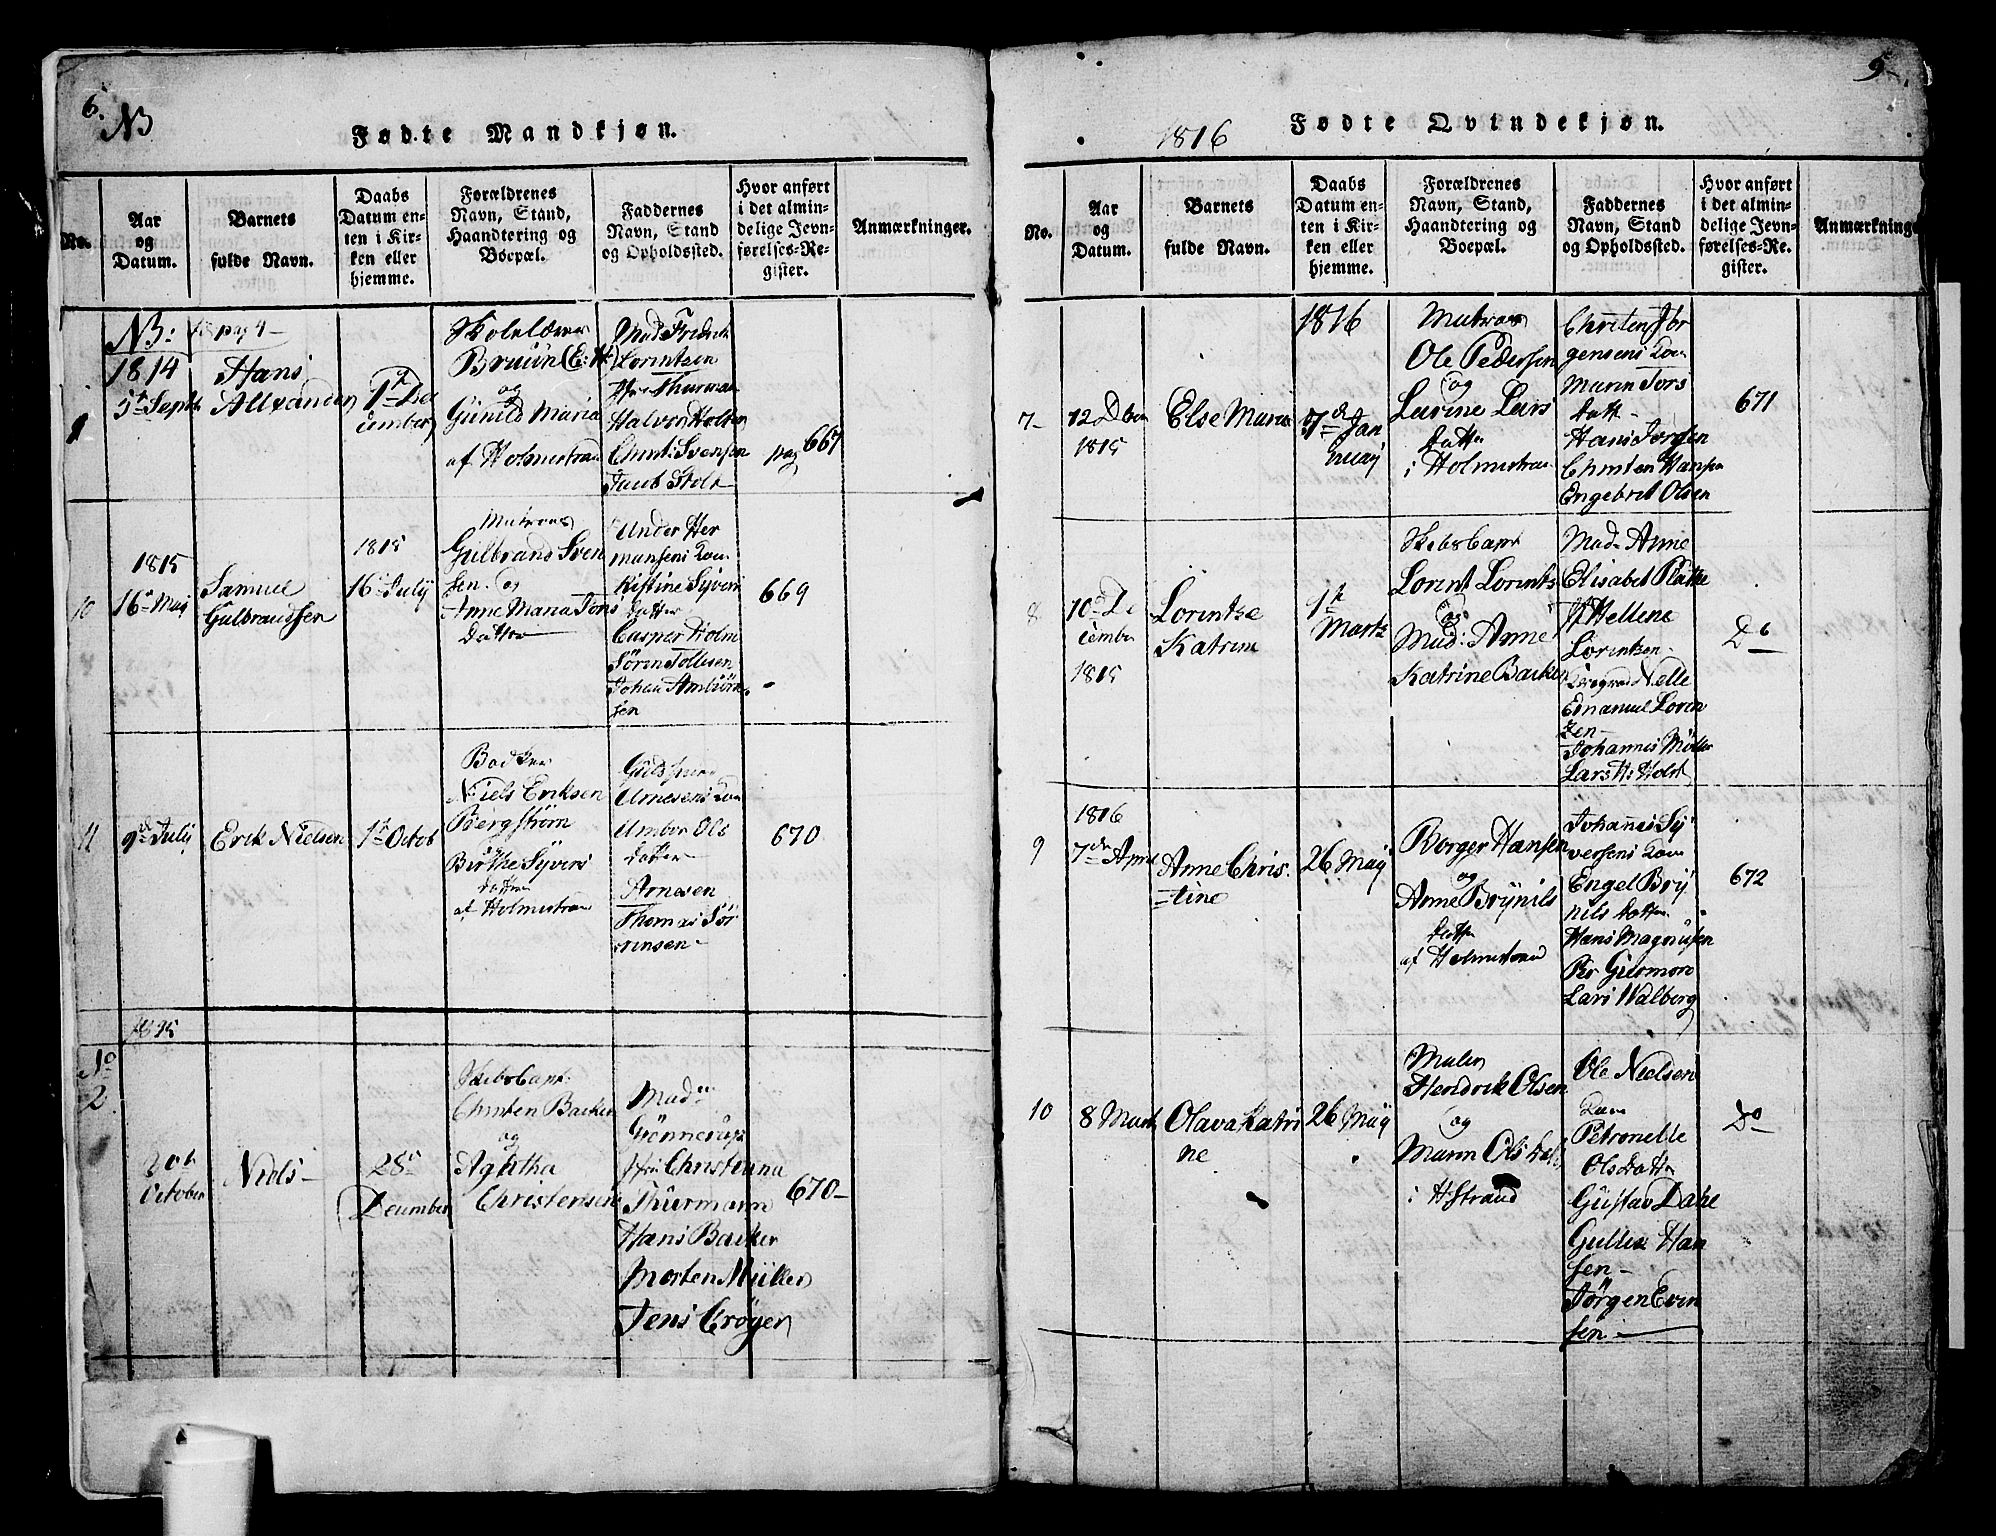 6.
NB
Fødte Mandkjøn.
No.
Aar
og
Datum.
Barnets
fulde Navn.
Daabs
Datum en-
ten i Kir-
ken eller
hjemme.
Forældrenes
Navn, Stand,
Haandtering og
Boepæl.
Faddernes
Navn, Stand
og Opholdssted.
Hvor anført
i det almin-
delige Jevn-
førelses-Re-
gister.
Anmærkninger.
NB: pag 4
9
1814
5te Septb
Hans
Allxander
1te De
cember
Skolelærer
Bruün (E: H:)
og
Gunild Maria
af Holmestrand
Mad Fridrik
Lorintzen
Jfr Thurman
Halvor Holter
Christ: Svensen
Jacob Stolt
pag 667
10
1815
16 Maij
Samuel
Gulbrandsen
1815
16 July
Matros
Gulbrand Sven
sen og
Anne Maria Tors
Datter
Under Her
mansens Kone
Kistine Syvers
Datter
Casper Holm
Sören Tollesen
Johan Ambiörn
sen
669
11
9de July
Erik Nielsen
1te Octob
Bødker
Niels Eriksen
Bergstrøm
Birthe Syvers
datter
af Holmestrand
Arnesens Kone
Ols
Datter
Arnesen
Thomas Sör
rensen
670
1815
No
2
20de
October
Niels
28de
December
Skibs Capt:
Christen Backer
og
Agatha
Christensen
Mad
Grönnerup
Jfru Christianna
Thurmann
Hans Backer
Morten Müller
Jens Cröger
670
5
1816
Fødte Qvindekjøn.
No.
Aar
og
Datum.
Barnets
fulde Navn.
Daabs
Datum en-
ten i Kir-
ken eller
hjemme.
Forældrenes
Navn, Stand,
Haandtering og
Boepæl.
Faddernes
Navn, Stand
og Opholdssted.
Hvor anført
i det almin-
delige Jevn-
førelses-Re-
gister.
Anmærkninge
7
12 Dbr
1815
Else Maria
1816
7de Jan
uarj
Matros
Ole Pedersen
og
Larine Lars
datter
i Holmestran
Christen Jör
gensens Kone
Maren Tors
datt
Hans Jorgsen
Christen Hansen
Engebret Olsen
671
8
10de De
cember
1815
Lorintze
Katrine
1te
Marts
Skibs Capt
Lorent Lorents
og
Mad: Anne
Katrine Backer
Mad Anne
Elisabet Platte
Jf Hellene
Lorintzen
Nelle
Emanuel Loren
zen
Johannes Möller
Lars H: Holst
Do
9
1816
7de April
Anne Chris
tine
26 Maij
Borger Hansen
og
Anne Brynils
datter
af Holmestrand
Johannes Sy
versens Kone
Engel Bry
nils datter
Hans Magnusen
Per Gulsmore
Lars Walberg
672
10
8 Marts
Olava Katri
ne
26 Maij
Maler
Hendrik Olsen
og
Maren Ols dat
i HStrand
Ole Nielsen
Kone
Petronelle
Olsdatter
Gustav Dahl
Gullik Han
sen
Jörgen Even
sen
Do